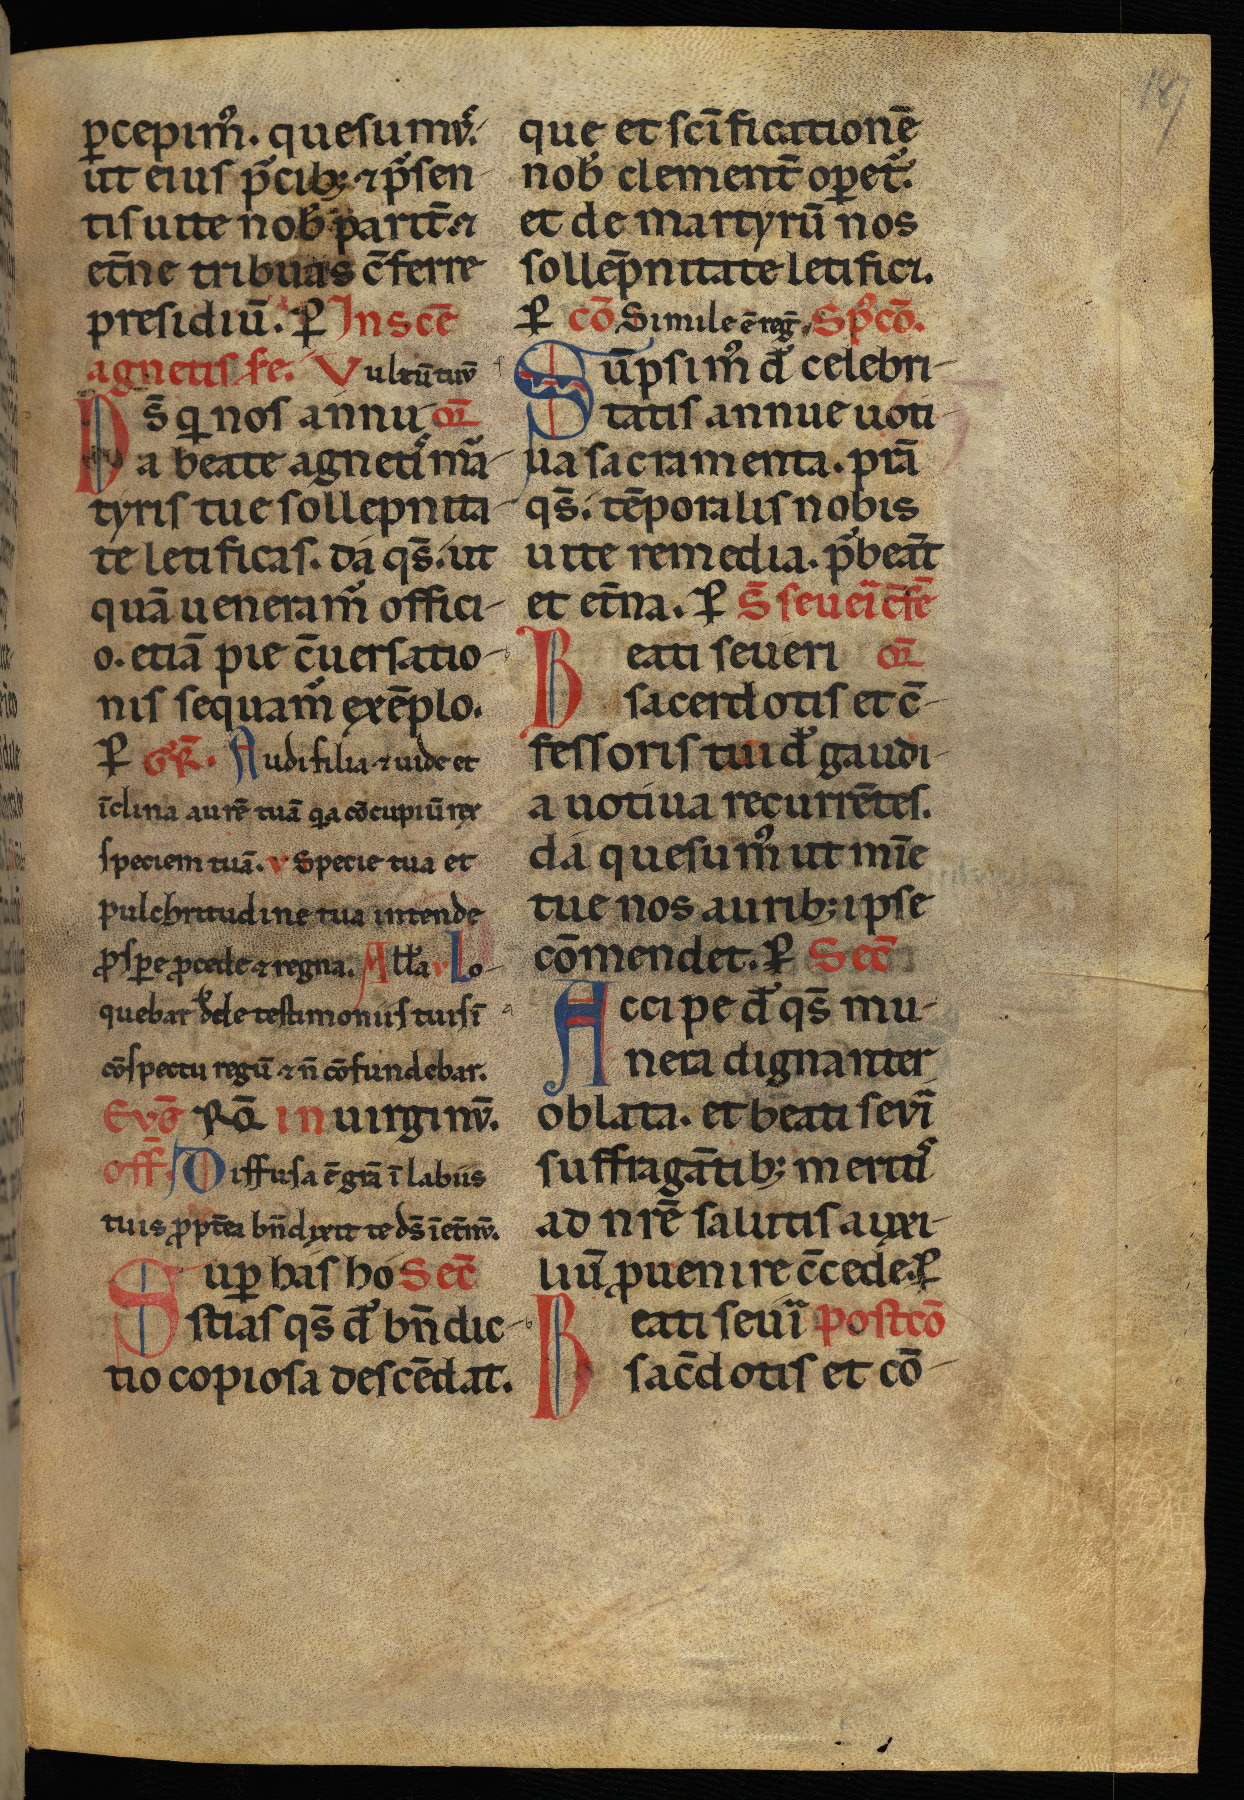 187
ꝑcepim᷒. quesumꝰ.
ut eius p̄cibꝫ ⁊ p̄sen
tis uite nob̄ parit̄ ⁊
et̄ne tribuas c̄ferre
presidiū. ꝑ In sc̄e
agnetis fe. Vultū tuū
D s̄ q nos annu or̄
a beate agnetis mā
tyris tue sollepnita
te letificas. da qs̄. ut
quā ueneram᷒ offici
o. etiā pie c̄uersatio
nis sequam᷒ exēplo.
ꝑ Gr̄. Audi filia ⁊ uide et
īclina aurē tuā qa cōcupiū rex
speciem tuā. v Specie tua et
pulchritudine tua intende
ꝓspe ꝓcede ⁊ regna. All'a v Lo
quebar de testimoniis tuis ī
cōspectu regū ⁊ n̄ cōfundebar.
Evḡ Rq̄ in uirginū.
Off̄. Diffusa ē gr̄a ī labiis
tuis ꝓpt̄ea bn̄dixit te ds̄ īet̄nū.
Suꝑ has ho Sec̄
stias qs̄ d̄ bn̄dic
tio copiosa descēdat.
que et sc̄ificationē
nob̄ clement̄ oꝑet᷒.
et de martyrū nos
sollēpnitate letifici.
ꝑ cō Simile ē reḡ. Sp᷒cō.
Sūpsim᷒ d̄ celebri
tatis annue uoti
ua sacramenta. pr̄a
qs̄. tēporalis nobis
uite remedia. p̄beāt
et et̄na. ꝑ S̄ seueī c̄fē
Beati seueri or̄
sacerdotis et c̄
fessoris tui d̄ gaudi
a uotiua recurrētes.
da quesum᷒ ut mīe
tue nos auribꝫ ipse
cōmendet. ꝑ Sec̄
Accipe d̄ qs̄ mu
nera dignanter
oblata. et beati sev̄i
suffragātibꝫ meritis
ad nr̄ē salutis auxi
liū ꝓuenire c̄cede. ꝑ
Beati seuī postcō
sac̄dotis et cō